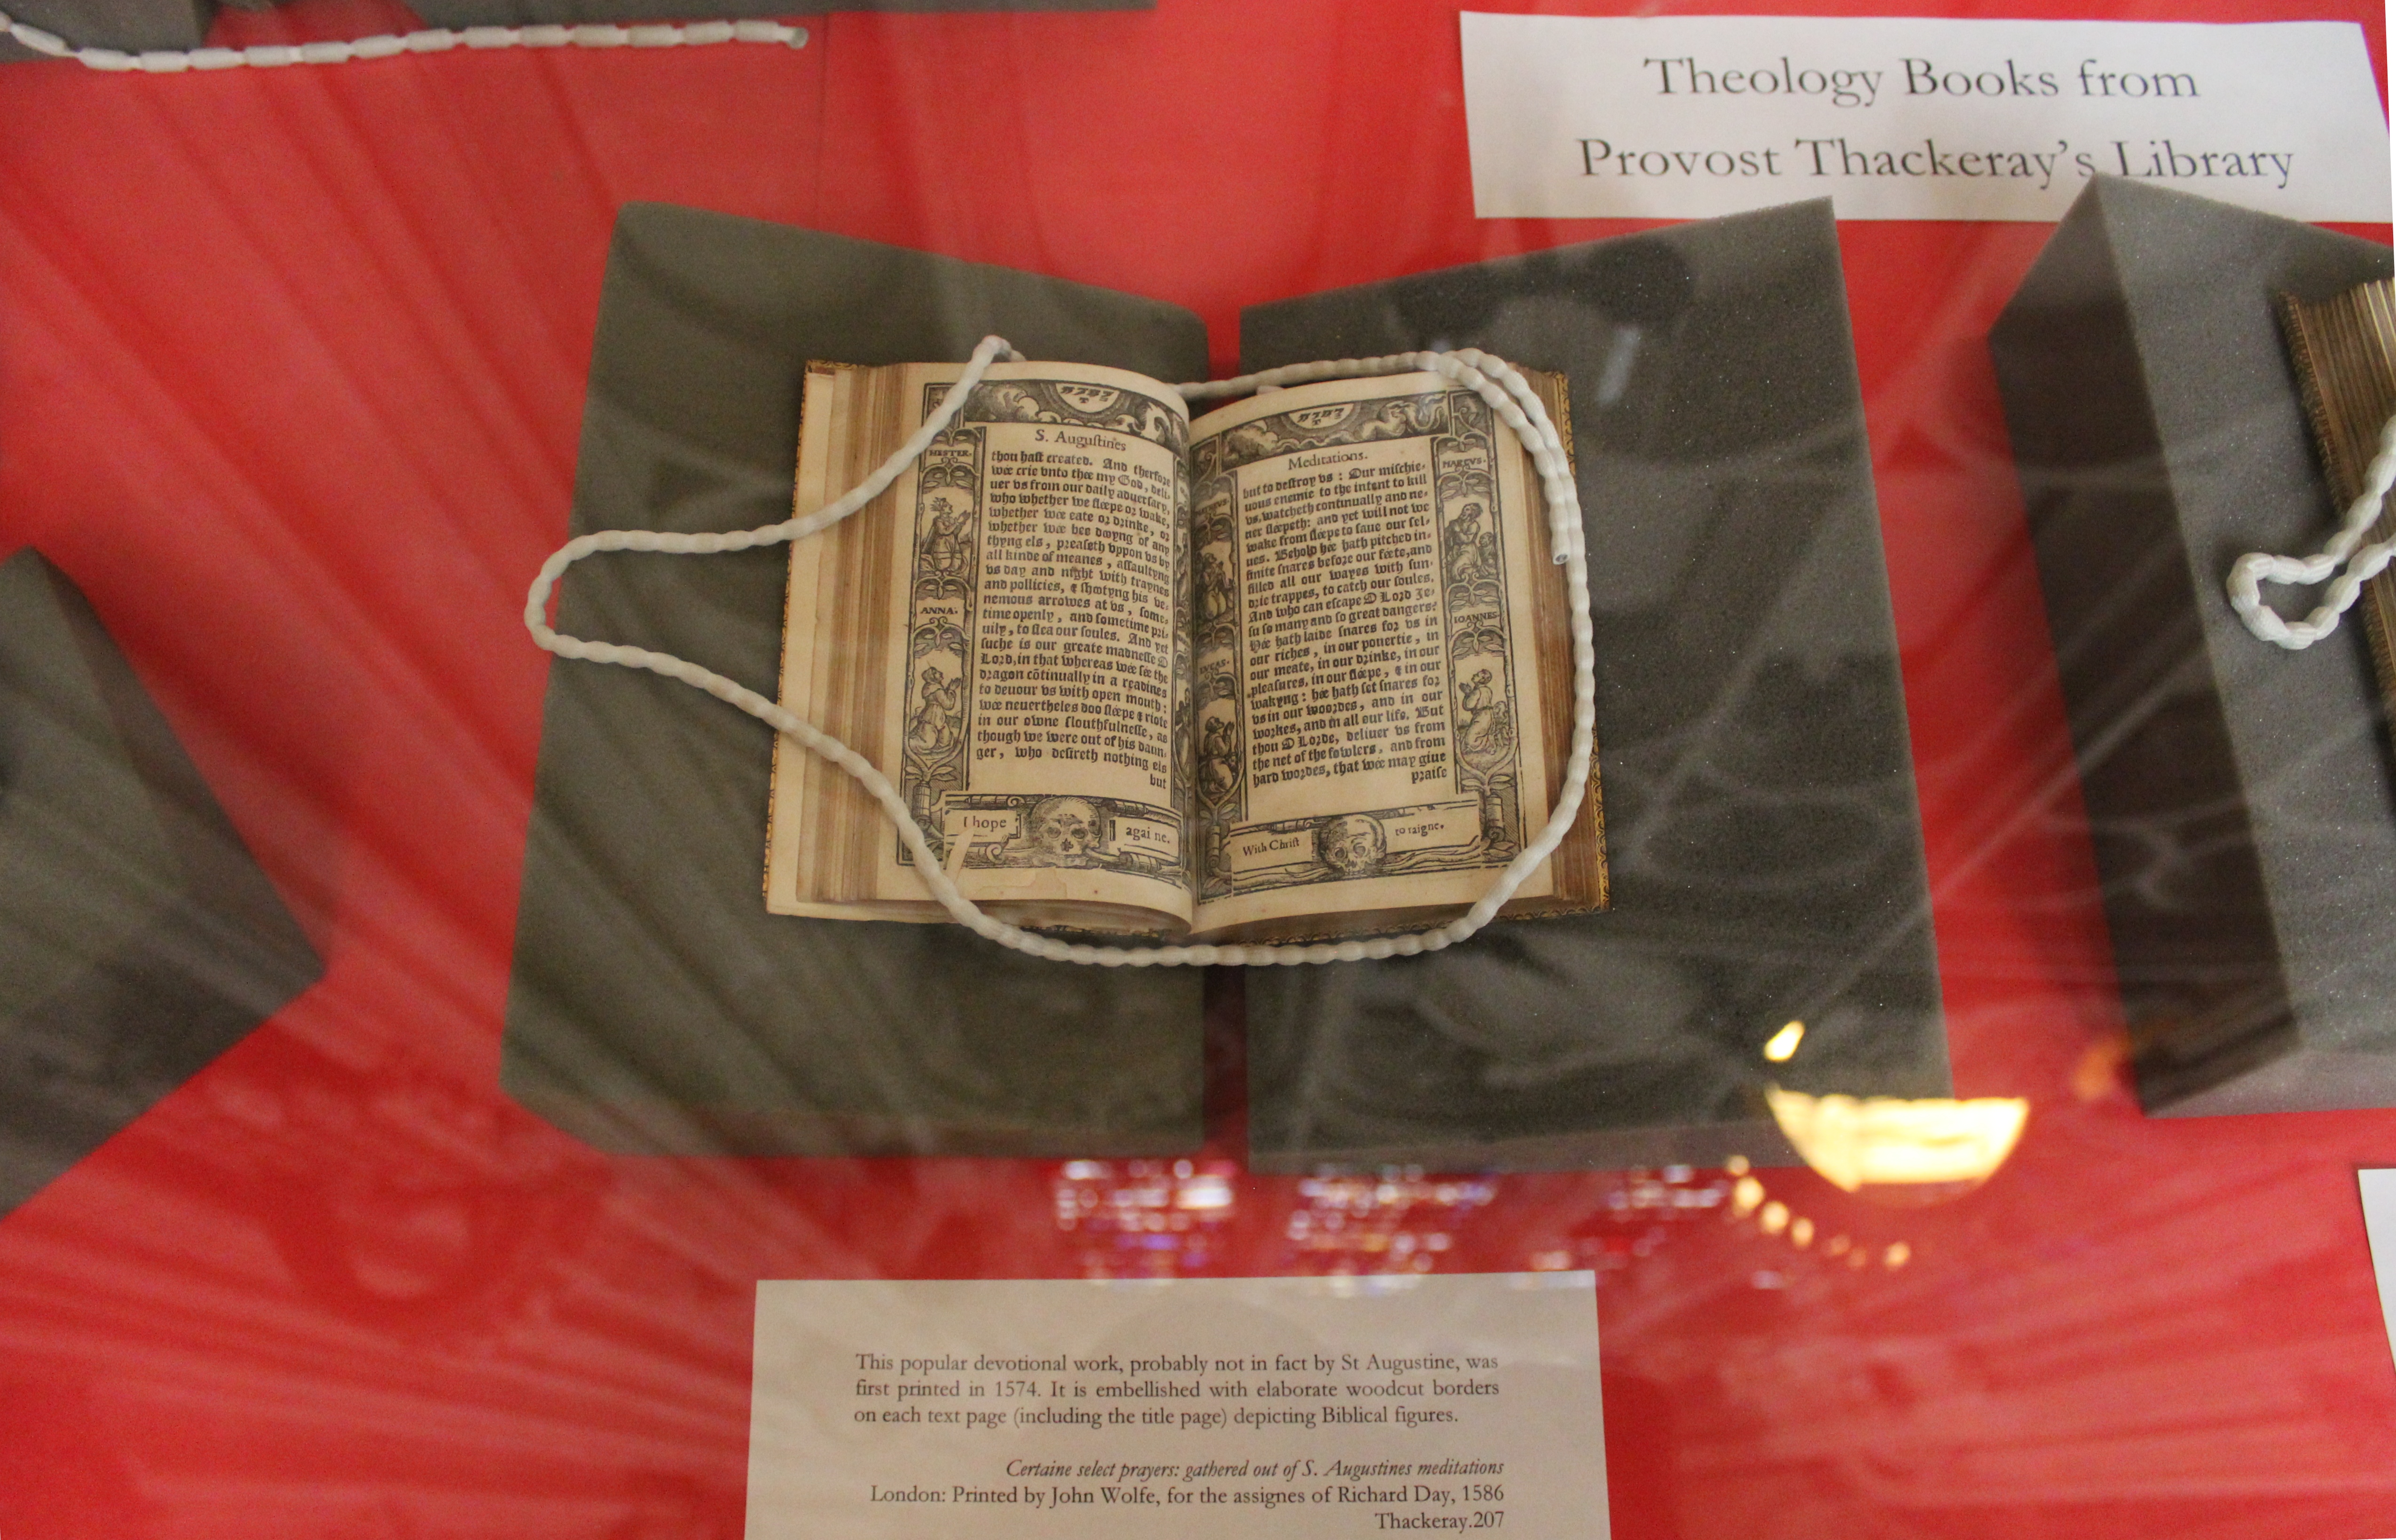 Theology Books from
Provost Thackeray's Library
S. Auguſtines
HESTER.
ANNA.
thou haſt created. And therfore
wee crie vnto thee my God, deli-
uer vs from our daily aduerſary,
who whether we ſleepe or wake,
whether wee eate or drinke, or
whether wee bee doyng of any
thyng els, preaſeth vppon vs by
all kinde of meanes, aſſaultyng
vs day and night with traynes
and pollicies, & ſhootyng his ve-
nemous arrowes at vs, ſome-
time openly, and ſometime pri-
uily, to ſlea our ſoules. And yet
ſuche is our greate madneſſe O
Lord, in that whereas wee ſee the
dragon cōtinually in a readines
to deuour vs with open mouth:
wee neuertheles doo ſleepe & riote
in our owne ſlouthfulneſſe, as
though we were out of his daun-
ger, who deſireth nothing els
but
I hope
againe.
Meditations.
MARCVS.
IOANNES
LVCAS.
but to deſtroy vs: Our miſchie-
uous enemie to the intent to kill
vs, watcheth continually and ne-
uer ſleepeth: and yet will not we
wake from ſleepe to ſaue our ſel-
ues. Behold hee hath pitched in-
finite ſnares before our feete, and
filled all our wayes with ſun-
drie trappes, to catch our ſoules.
And who can eſcape O Lord Je-
ſu ſo many and ſo great dangers?
Hee hath laide ſnares for vs in
our riches, in our pouertie, in
our meate, in our drinke, in our
pleaſures, in our ſleepe, & in our
wakyng: hee hath ſet ſnares for
vs in our woordes, and in our
workes, and in all our life. But
thou O Lorde, deliuer vs from
the net of the fowlers, and from
hard wordes, that wee may giue
praiſe
With Chriſt
to raigne.
This popular devotional work, probably not in fact by St Augustine, was
first printed in 1574. It is embellished with elaborate woodcut borders
on each text page (including the title page) depicting Biblical figures.
Certaine select prayers: gathered out of S. Augustines meditations
London: Printed by John Wolfe, for the assignes of Richard Day, 1586
Thackeray.207